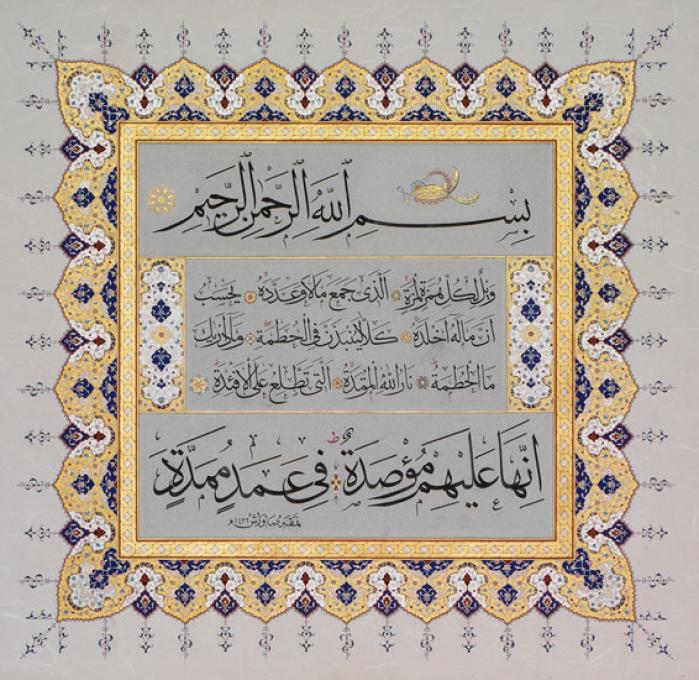 بِسْمِ اللَّهِ الرَّحْمٰنِ الرَّحِيمِ
وَيْلٌ لِكُلِّ هُمَزَةٍ لُمَزَةٍ الَّذِى جَمَعَ مَالًا وَعَدَّدَهُ يَحْسَبُ
اَنَّ مَالَهُ اَخْلَدَهُ كَلَّا لَيُنْبَذَنَّ فِى الْحُطَمَةِ وَمَا اَدْرٰيكَ
مَا الْحُطَمَةُ نَارُ اللّٰهِ الْمُوقَدَةُ الَّتِى تَطَّلِعُ عَلَى الْاَفْئِدَةِ
اِنَّهَا عَلَيْهِمْ مُؤْصَدَةٌ فِى عَمَدٍ مُمَدَّدَةٍ